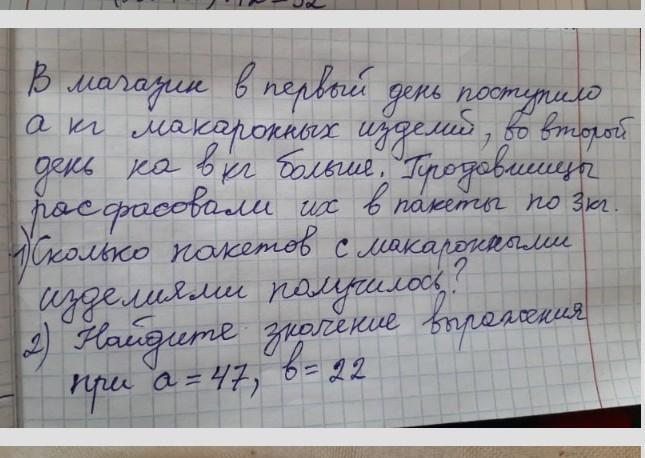 В магазин в первый день поступило
а кг макаронных изделий, во второй
день на в кг больше. Продавщицы
расфасовали их в пакеты по 3 кг.
1) Сколько пакетов с макаронными
изделиями получилось?
2) Найдите значение выражения
при а = 47, в = 22